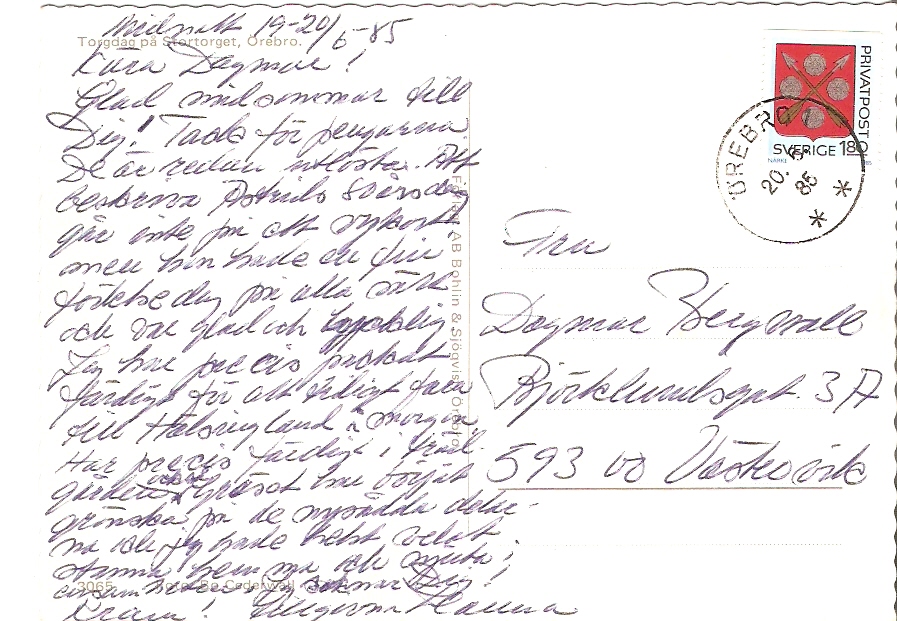 Midnatt 19-20/6-85
Torgdag på Stortorget, Örebro.
Kära Dagmar!
Glad midsommar till
Dig! Tack för pengarna.
De är redan inlösta. Att
beskriva Astrids 80årsdag
går inte på ett vykort
men hon hade en fin
födelsedag på alla sätt
och var glad och lycklig
Jag har precis packat
färdigt för att tidigt fara
till Hälsingland i morgon
Har precis färdigt i träd-
gården också. Gräset har börjat
grönska på de nysådda delar-
na och jag hade helst velat
stanna hemma och njuta i
Dig!
Kram! Hanna
3065 Foto: Bo Cederwall
Förlag AB Bohlin & Sjöqvist, Örebro
PRIVATPOST
SVERIGE 180
NÄRKE
ÖREBRO 1
20. 6. 85
Fru
Dagmar Bergwall
Björklundsgat. 3 A
593 00 Västervik